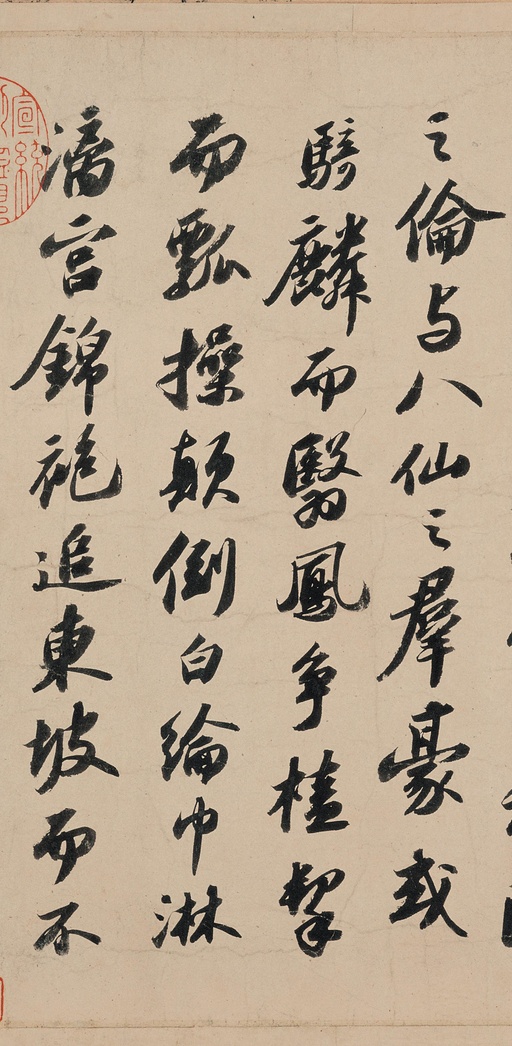 之倫与八仙之羣豪或
騎麟而翳鳳爭榼挈
而瓢操顛倒白綸巾淋
漓宮錦袍追東坡而不
宣統